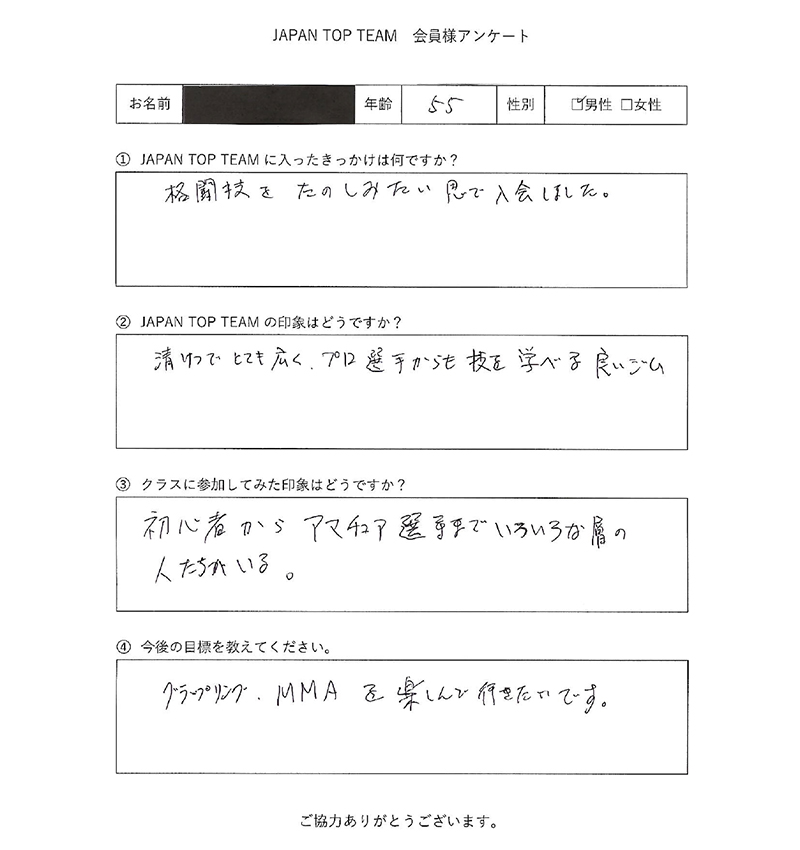 JAPAN TOP TEAM 会員様アンケート
お名前 年齢 55 性別 ☑男性 □女性
① JAPAN TOP TEAM に入ったきっかけは何ですか？
格闘技を たのしみたい 思で 入会しました。
② JAPAN TOP TEAM の印象はどうですか？
清けつで とても広く、プロ選手からも 技を 学べる 良いジム
③ クラスに参加してみた印象はどうですか？
初心者から アマチュア選手まで いろいろな層の
人たちがいる。
④ 今後の目標を教えてください。
グラップリング、MMA を楽しんで行きたいです。
ご協力ありがとうございます。